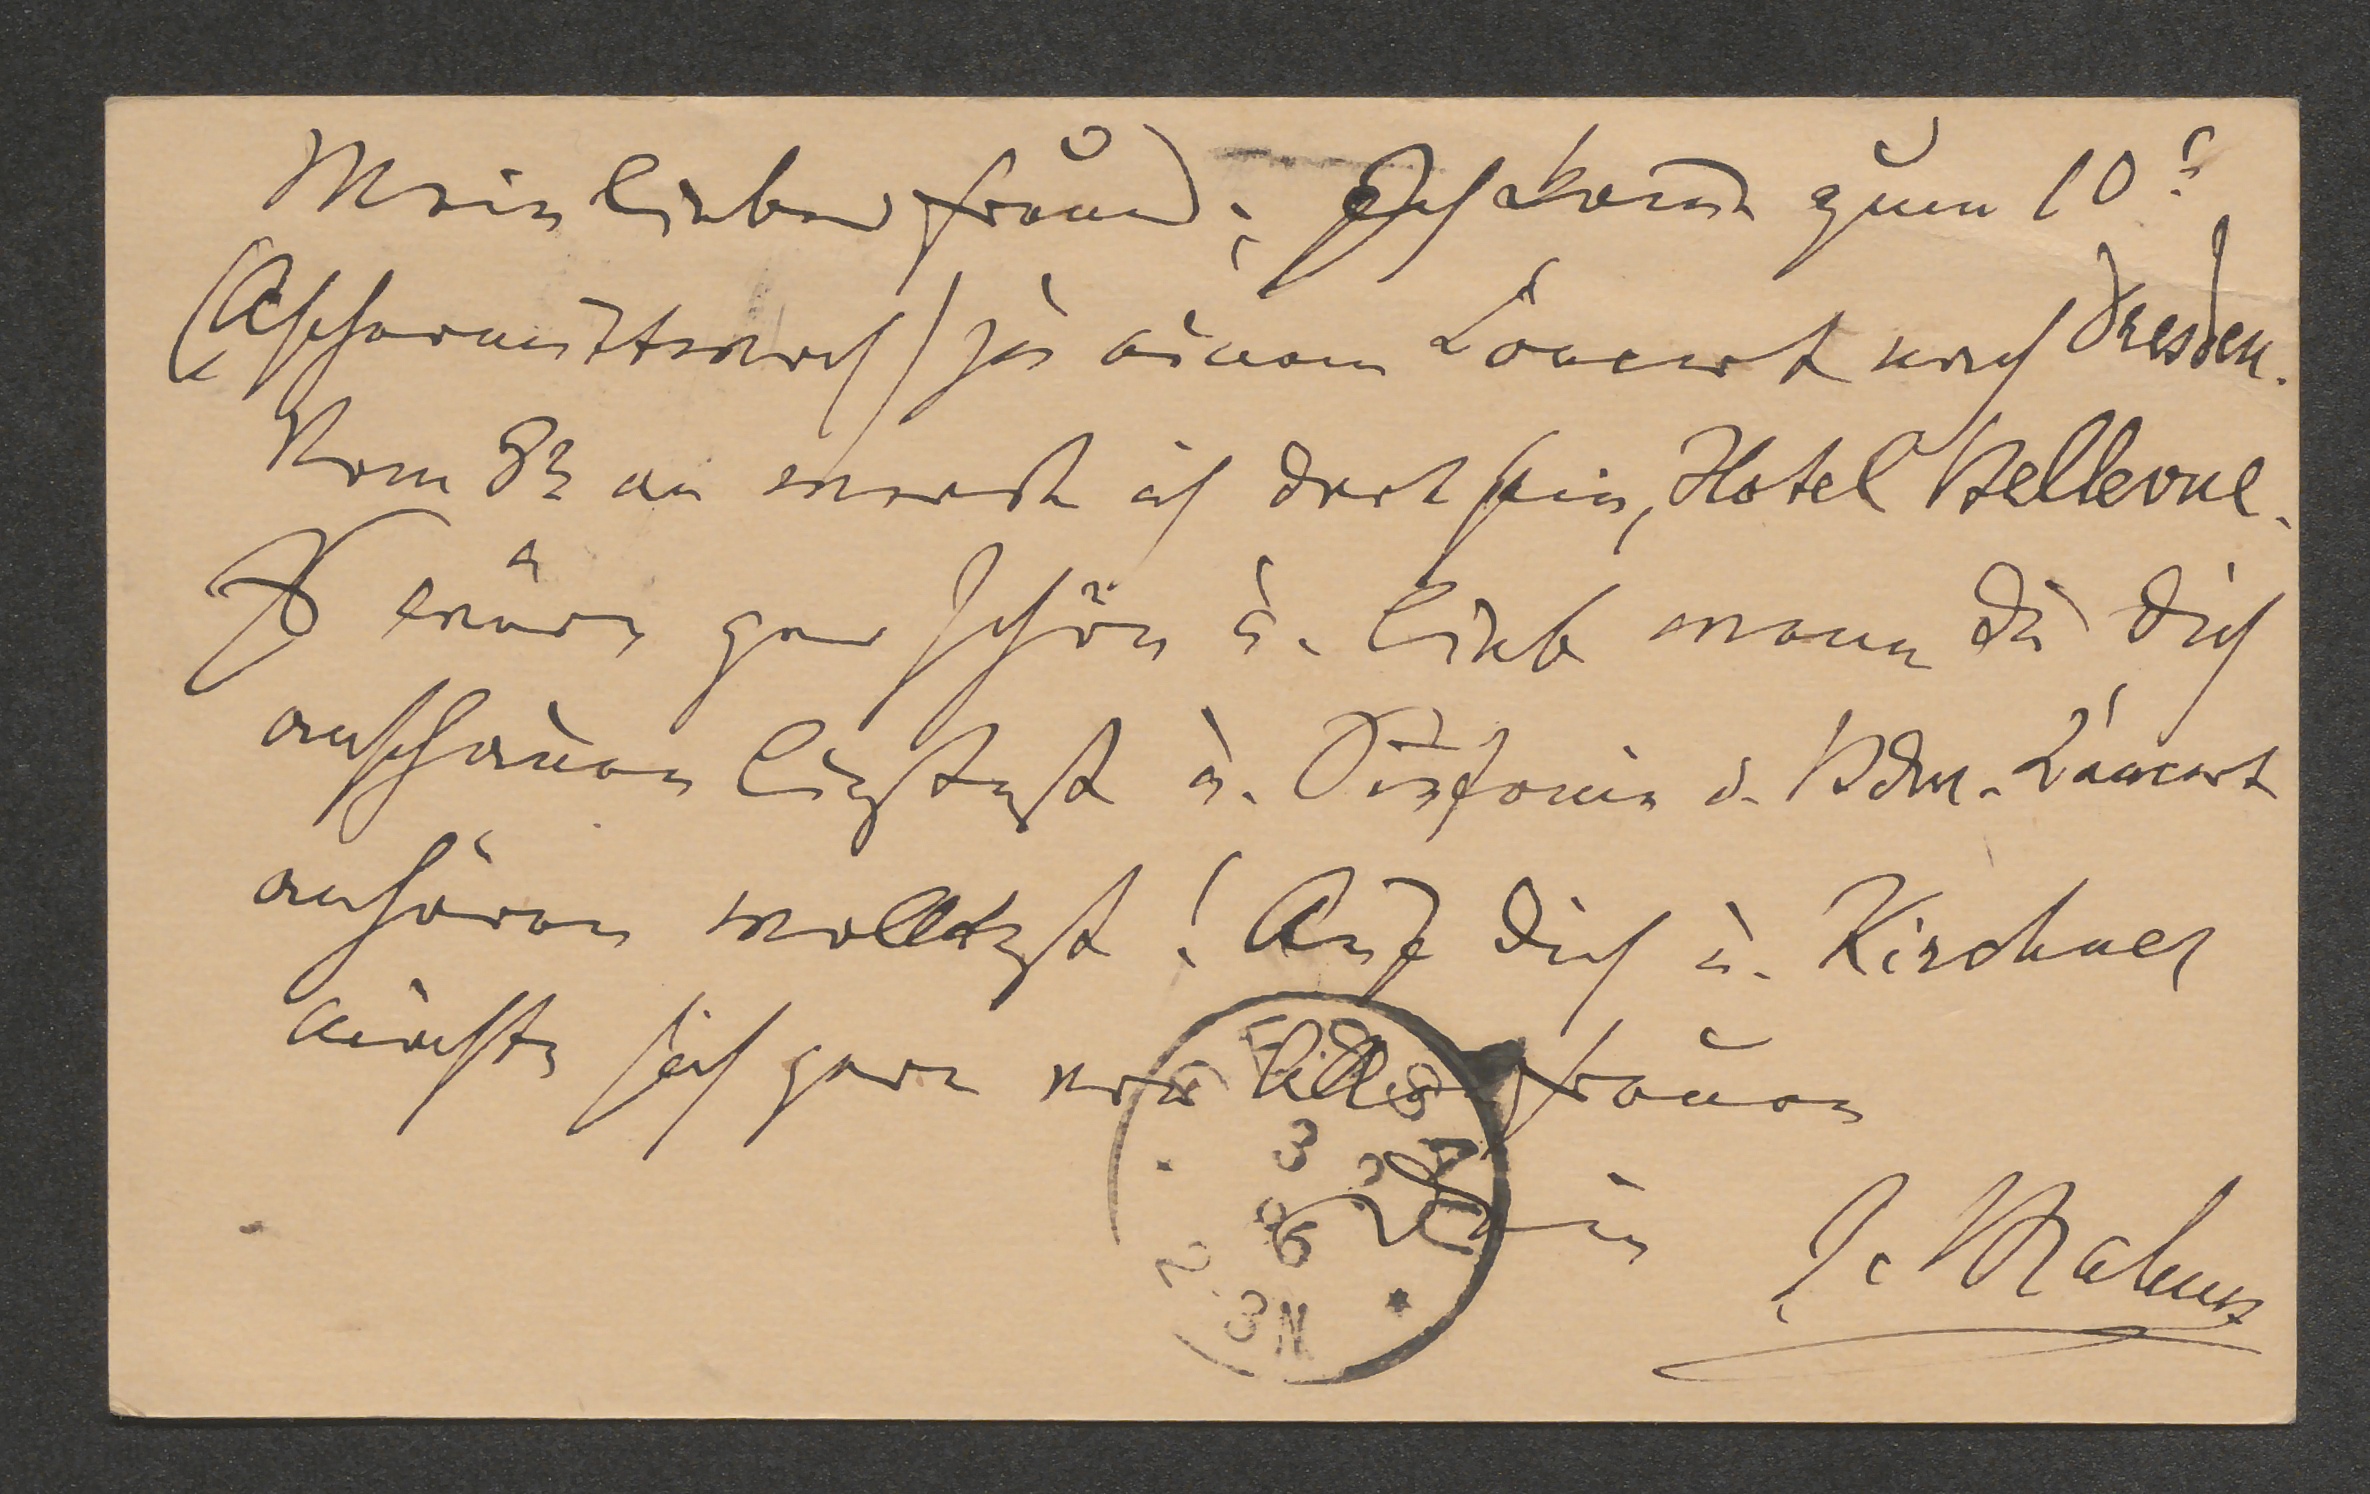 Mein lieber Freund, Ich komme zum 10t.
(Aschermittwoch) zu einem Concert nach Dresden.
Vom 8t. an werde ich dort sein, Hotel Bellevue.
Es wäre gar schön u. lieb wenn Du Dich
anschauen ließest u. Sinfonie u. Concert
anhören wolltest! Auf Dich u. Kirchner
möchte sich gern freuen
Dein J. Brahms
3 3
86
2-3N